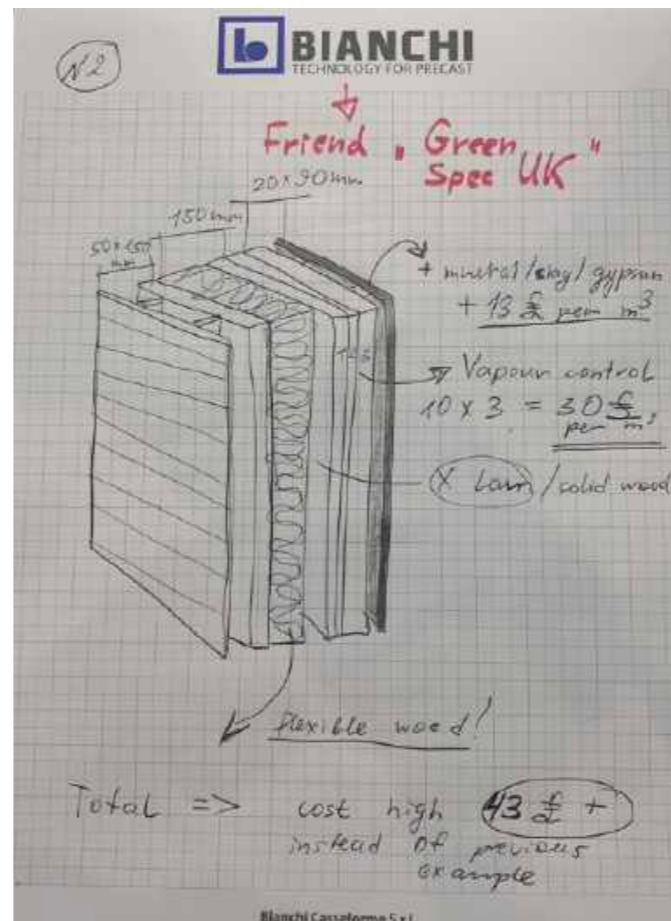 N2
BIANCHI
TECHNOLOGY FOR PRECAST
Friend „Green
Spec UK"
20×90mm
150mm
50×150
mm
+ mineral/clay/gypsum
+ 13 £ per m³
Vapour control
10 × 3 = 30 £
per m³
X Lam / solid wood
1 2 3
flexible wood!
Total => cost high 43 £ +
instead of previous
example
Bianchi Casseforme S.r.l.